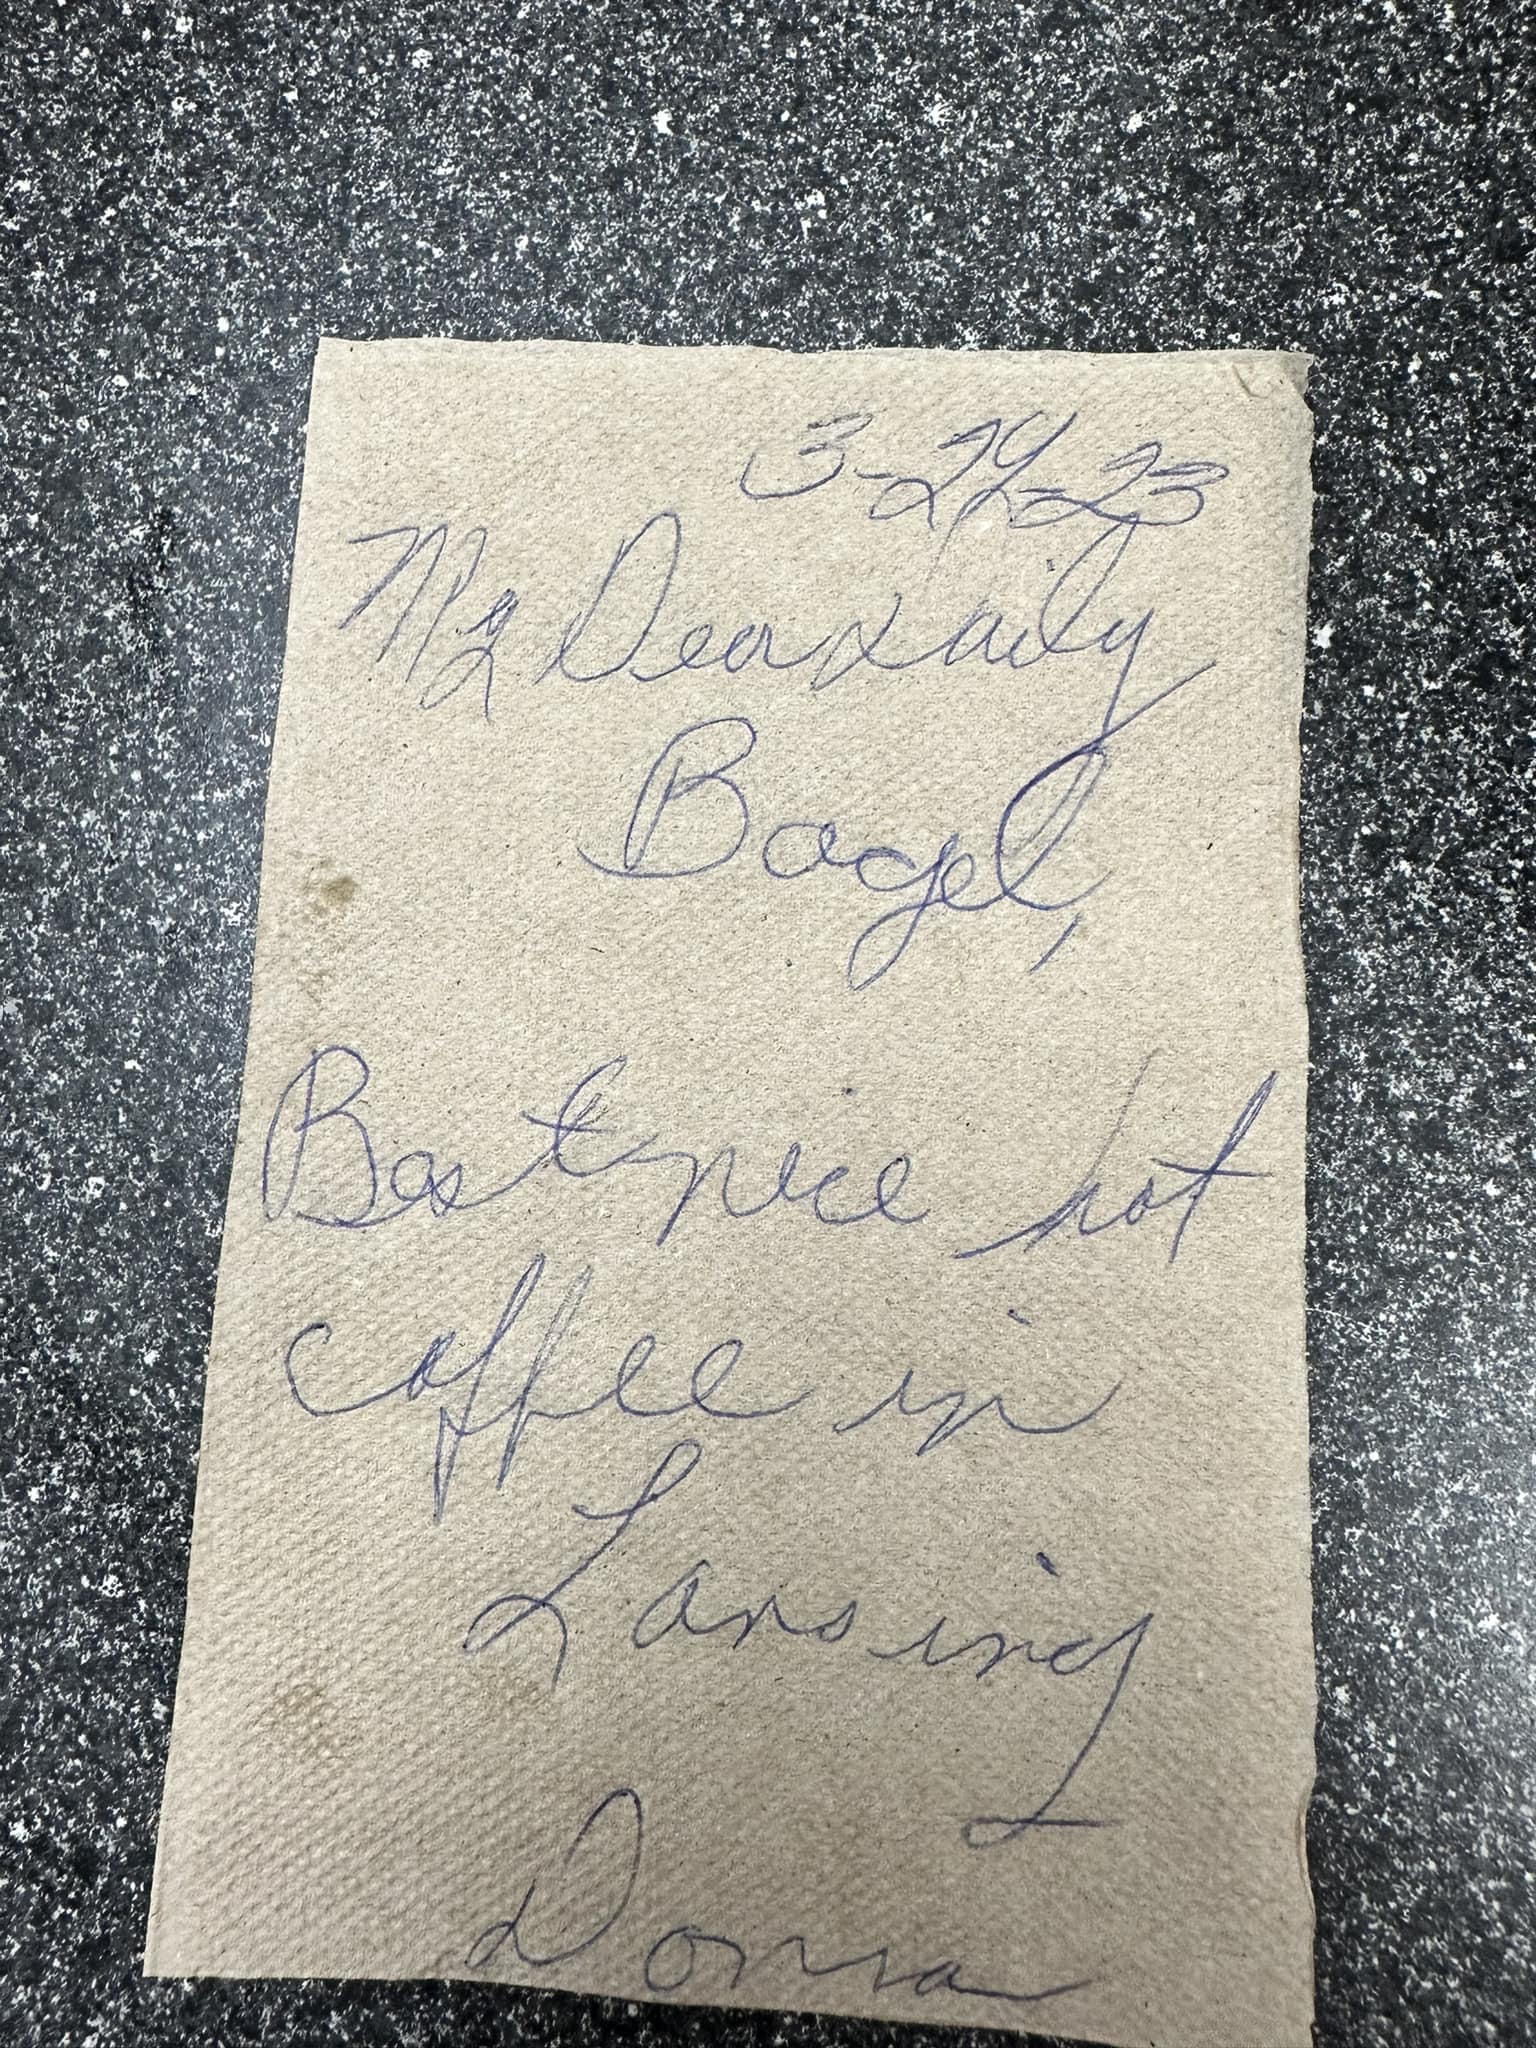 3-24-23
My Dear Daily
Bagel,
Best nice hot
coffee in
Lansing
Donna